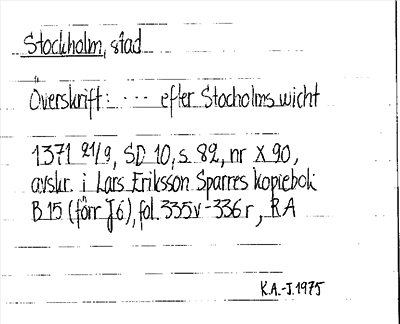 Stockholm, stad
Överskrift: ... efter Stocholms wicht
1371 21/9, SD 10, s 82, nr X 90,
avskr. i Lars Eriksson Sparres kopiebok
B 15 (förr J 6), fol. 335v-336r, RA
K.A.-J. 1975